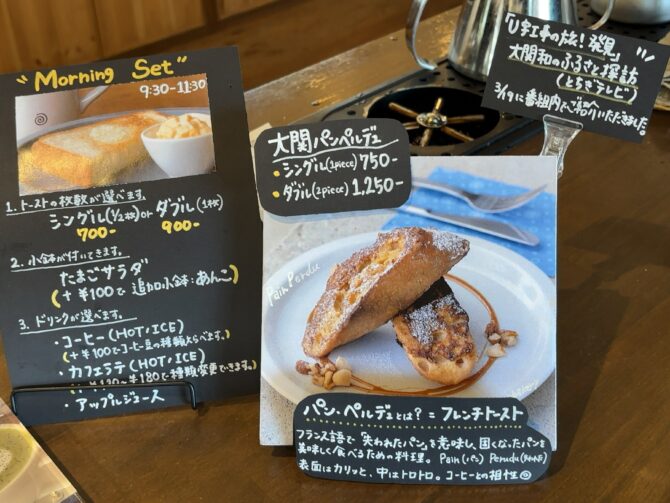 "Morning Set"
9:30-11:30
1.トーストの枚数が選べます。
シングル(1/2枚)or ダブル(1枚)
700- 900-
2.小鉢が付いてきます。
たまごサラダ
(+¥100で 追加小鉢:あんこ)
3.ドリンクが選べます。
・コーヒー(HOT・ICE)
(+¥100でコーヒー豆の種類えらべます。)
・カフェラテ(HOT・ICE)
¥180で種類変更できます。)
・アップルジュース
大関パンペルデュ
・シングル(1piece) 750-
・ダブル(2piece) 1,250-
「U字工事の旅!発見」
大関和のふるさと探訪
(とちぎテレビ)
3/19に番組内でご紹介いただきました
Pain Perdu
パン・ペルデュとは?=フレンチトースト
フランス語で"失われたパン"を意味し、固くなったパンを
美味しく食べるための料理。Pain(パン) Perudu(失われた)
表面はカリッと、中はトロトロ。コーヒーとの相性◎